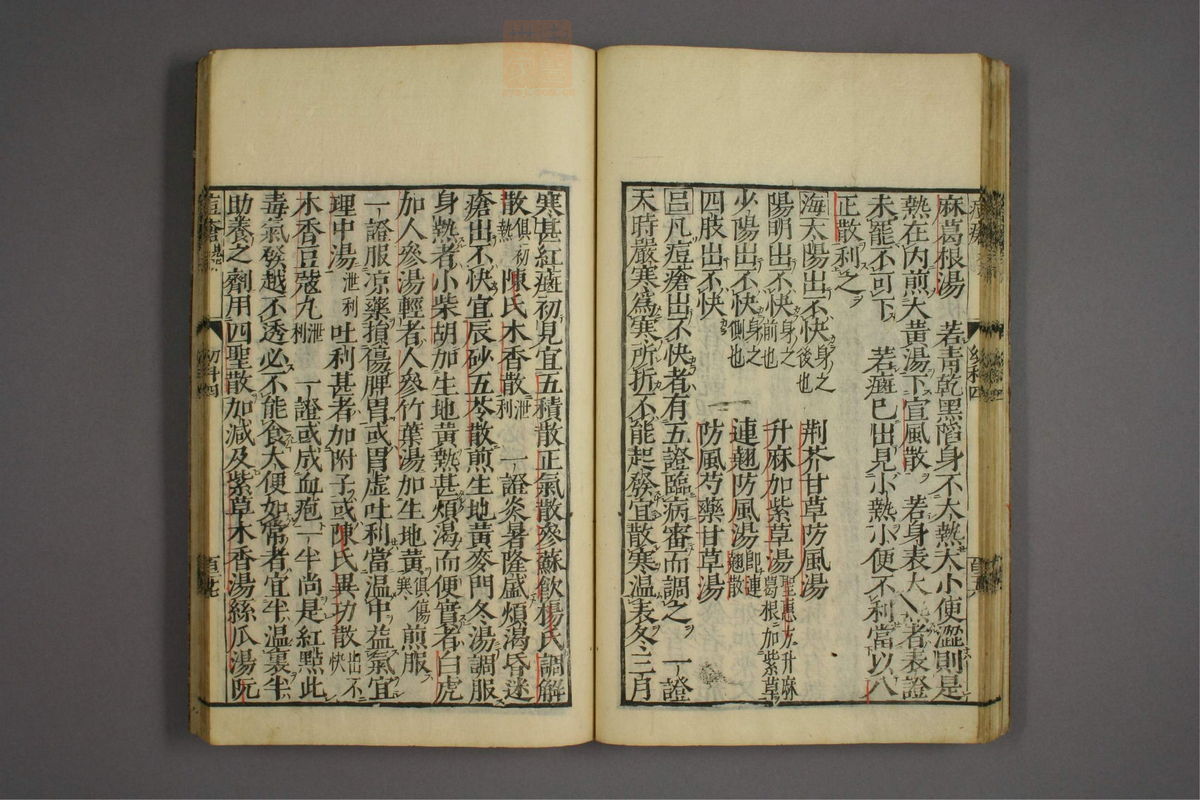 麻葛根湯　若青乾黑陷身不大熱大小便澀則是
熱在内煎大黃湯下宣風散　若身表大　者表證
未罷不可下　若瘢已出見小熱小便不利當以八
正散利之
海太陽出不快身之後也　荊芥甘草防風湯
陽明出不快身之前也　升麻加紫草湯聖惠方升麻葛根加紫草
少陽出不快身之側也　連翹防風湯即連翹散
四肢出不快　防風芍藥甘草湯
呂凡痘瘡出不快者有五證臨病審而調之　一證
天時嚴寒爲寒所折不能起發宜散寒溫表冬三月
寒甚紅瘢初見宜五積散正氣散參蘇飲楊氏調解
散俱初熱陳氏木香散泄利　一證炎暑隆盛煩渴昏迷
瘡出不快宜辰砂五苓散煎生地黃麥門冬湯調服
身熱者小柴胡加生地黃熱甚煩渴而便實者白虎
加人參湯輕者人參竹葉湯加生地黃俱傷寒煎服
一證服凉藥損傷脾胃或胃虛吐利當溫中益氣宜
理中湯泄利吐利甚者加附子或陳氏異功散出不快
木香豆蔻丸泄利　一證或成血疱一半尚是紅點此
毒氣發越不透必不能食大便如常者宜半溫裏半
助養之劑用四聖散加減及紫草木香湯絲瓜湯阮